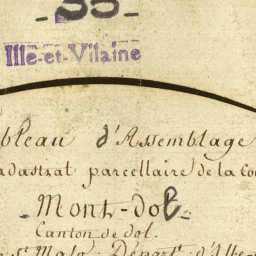 - 35 -
Ille-et-Vilaine
bleau d'Assemblage
adastral parcellaire de la Co
- Mont-dol -
Canton de dol.
St Malo Départt d'Ille-